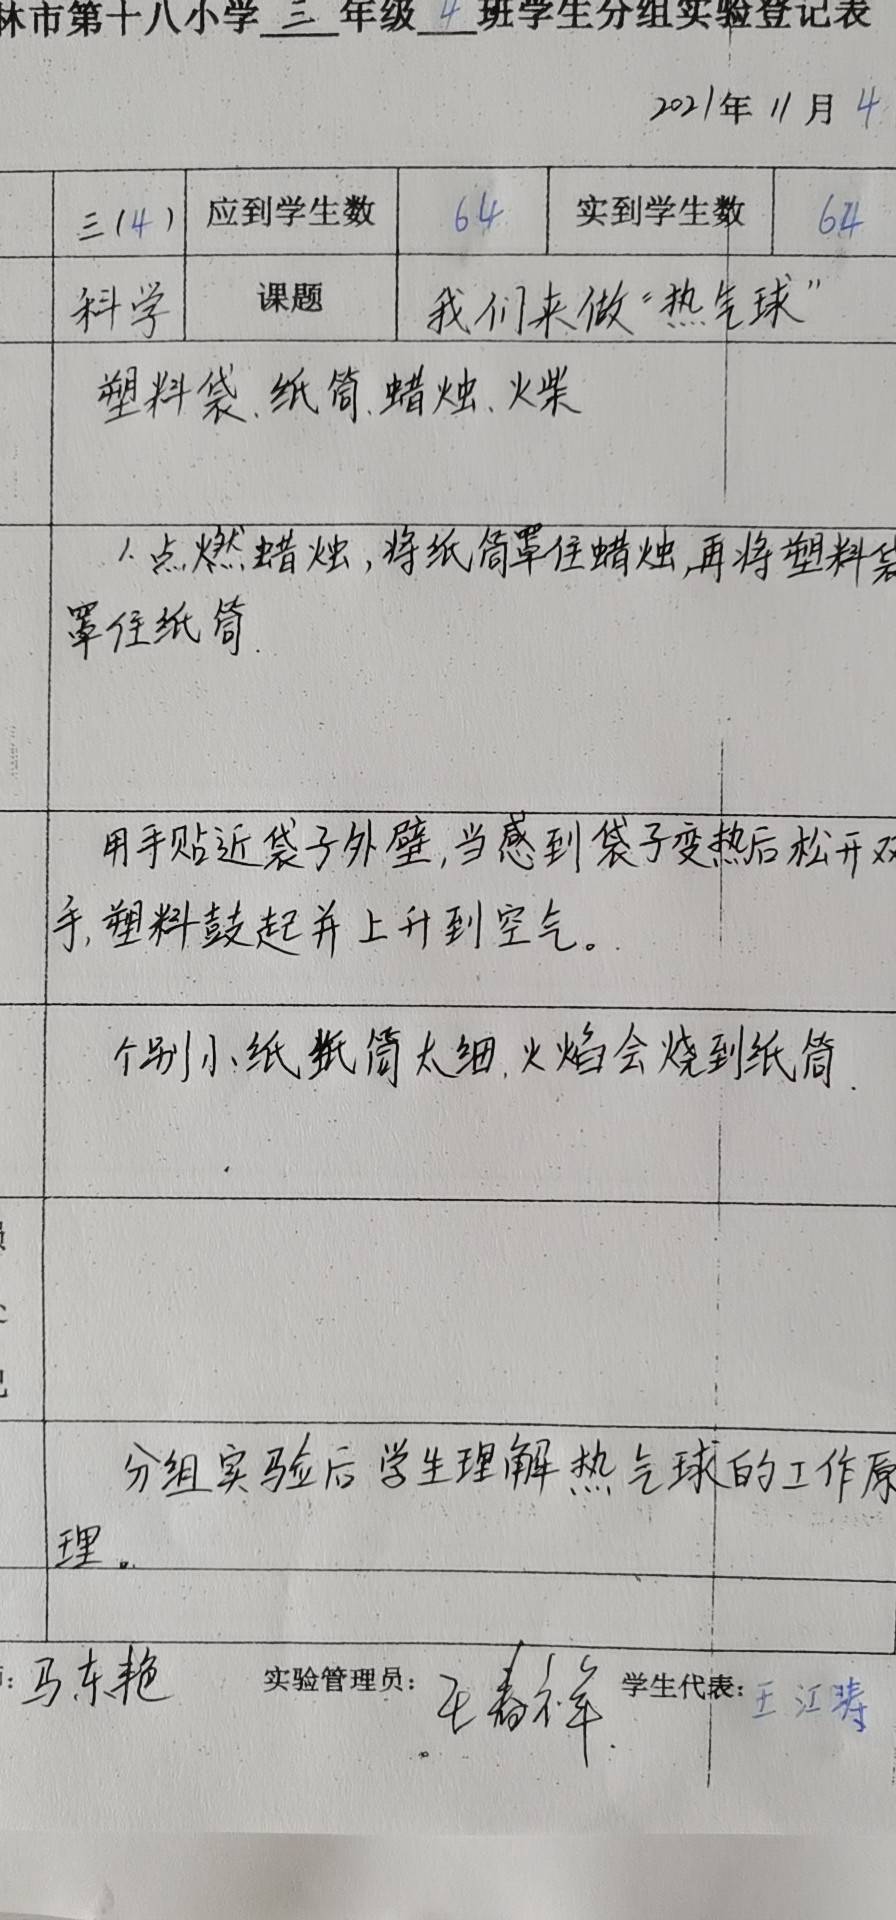 林市第十八小学三年级4班学生分组实验登记表
2021年11月4
三(4) 应到学生数 64 实到学生数 64
科学 课题 我们来做“热气球”
塑料袋、纸筒、蜡烛、火柴
1、点燃蜡烛,将纸筒罩住蜡烛,再将塑料袋
罩住纸筒.
用手贴近袋子外壁,当感到袋子变热后松开双
手,塑料鼓起并上升到空气。
个别小纸筒太细,火焰会烧到纸筒.
分组实验后学生理解热气球的工作原
理。
:马东艳 实验管理员:王春祥 学生代表:王江涛